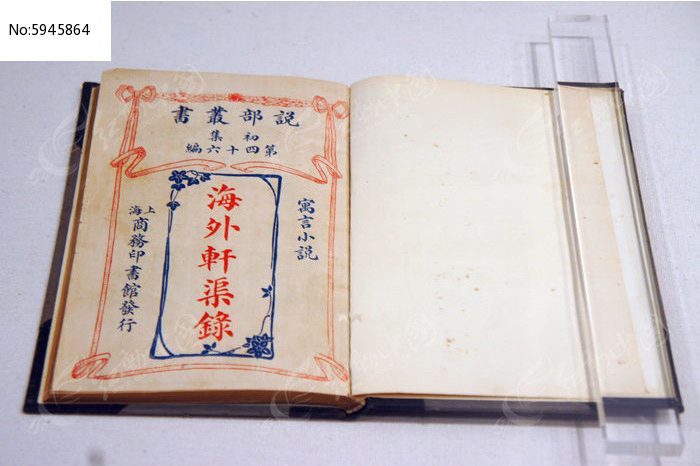 No:5945864
說部叢書
初集
第四十六編
寓言小說
海外軒渠錄
上海商務印書館發行